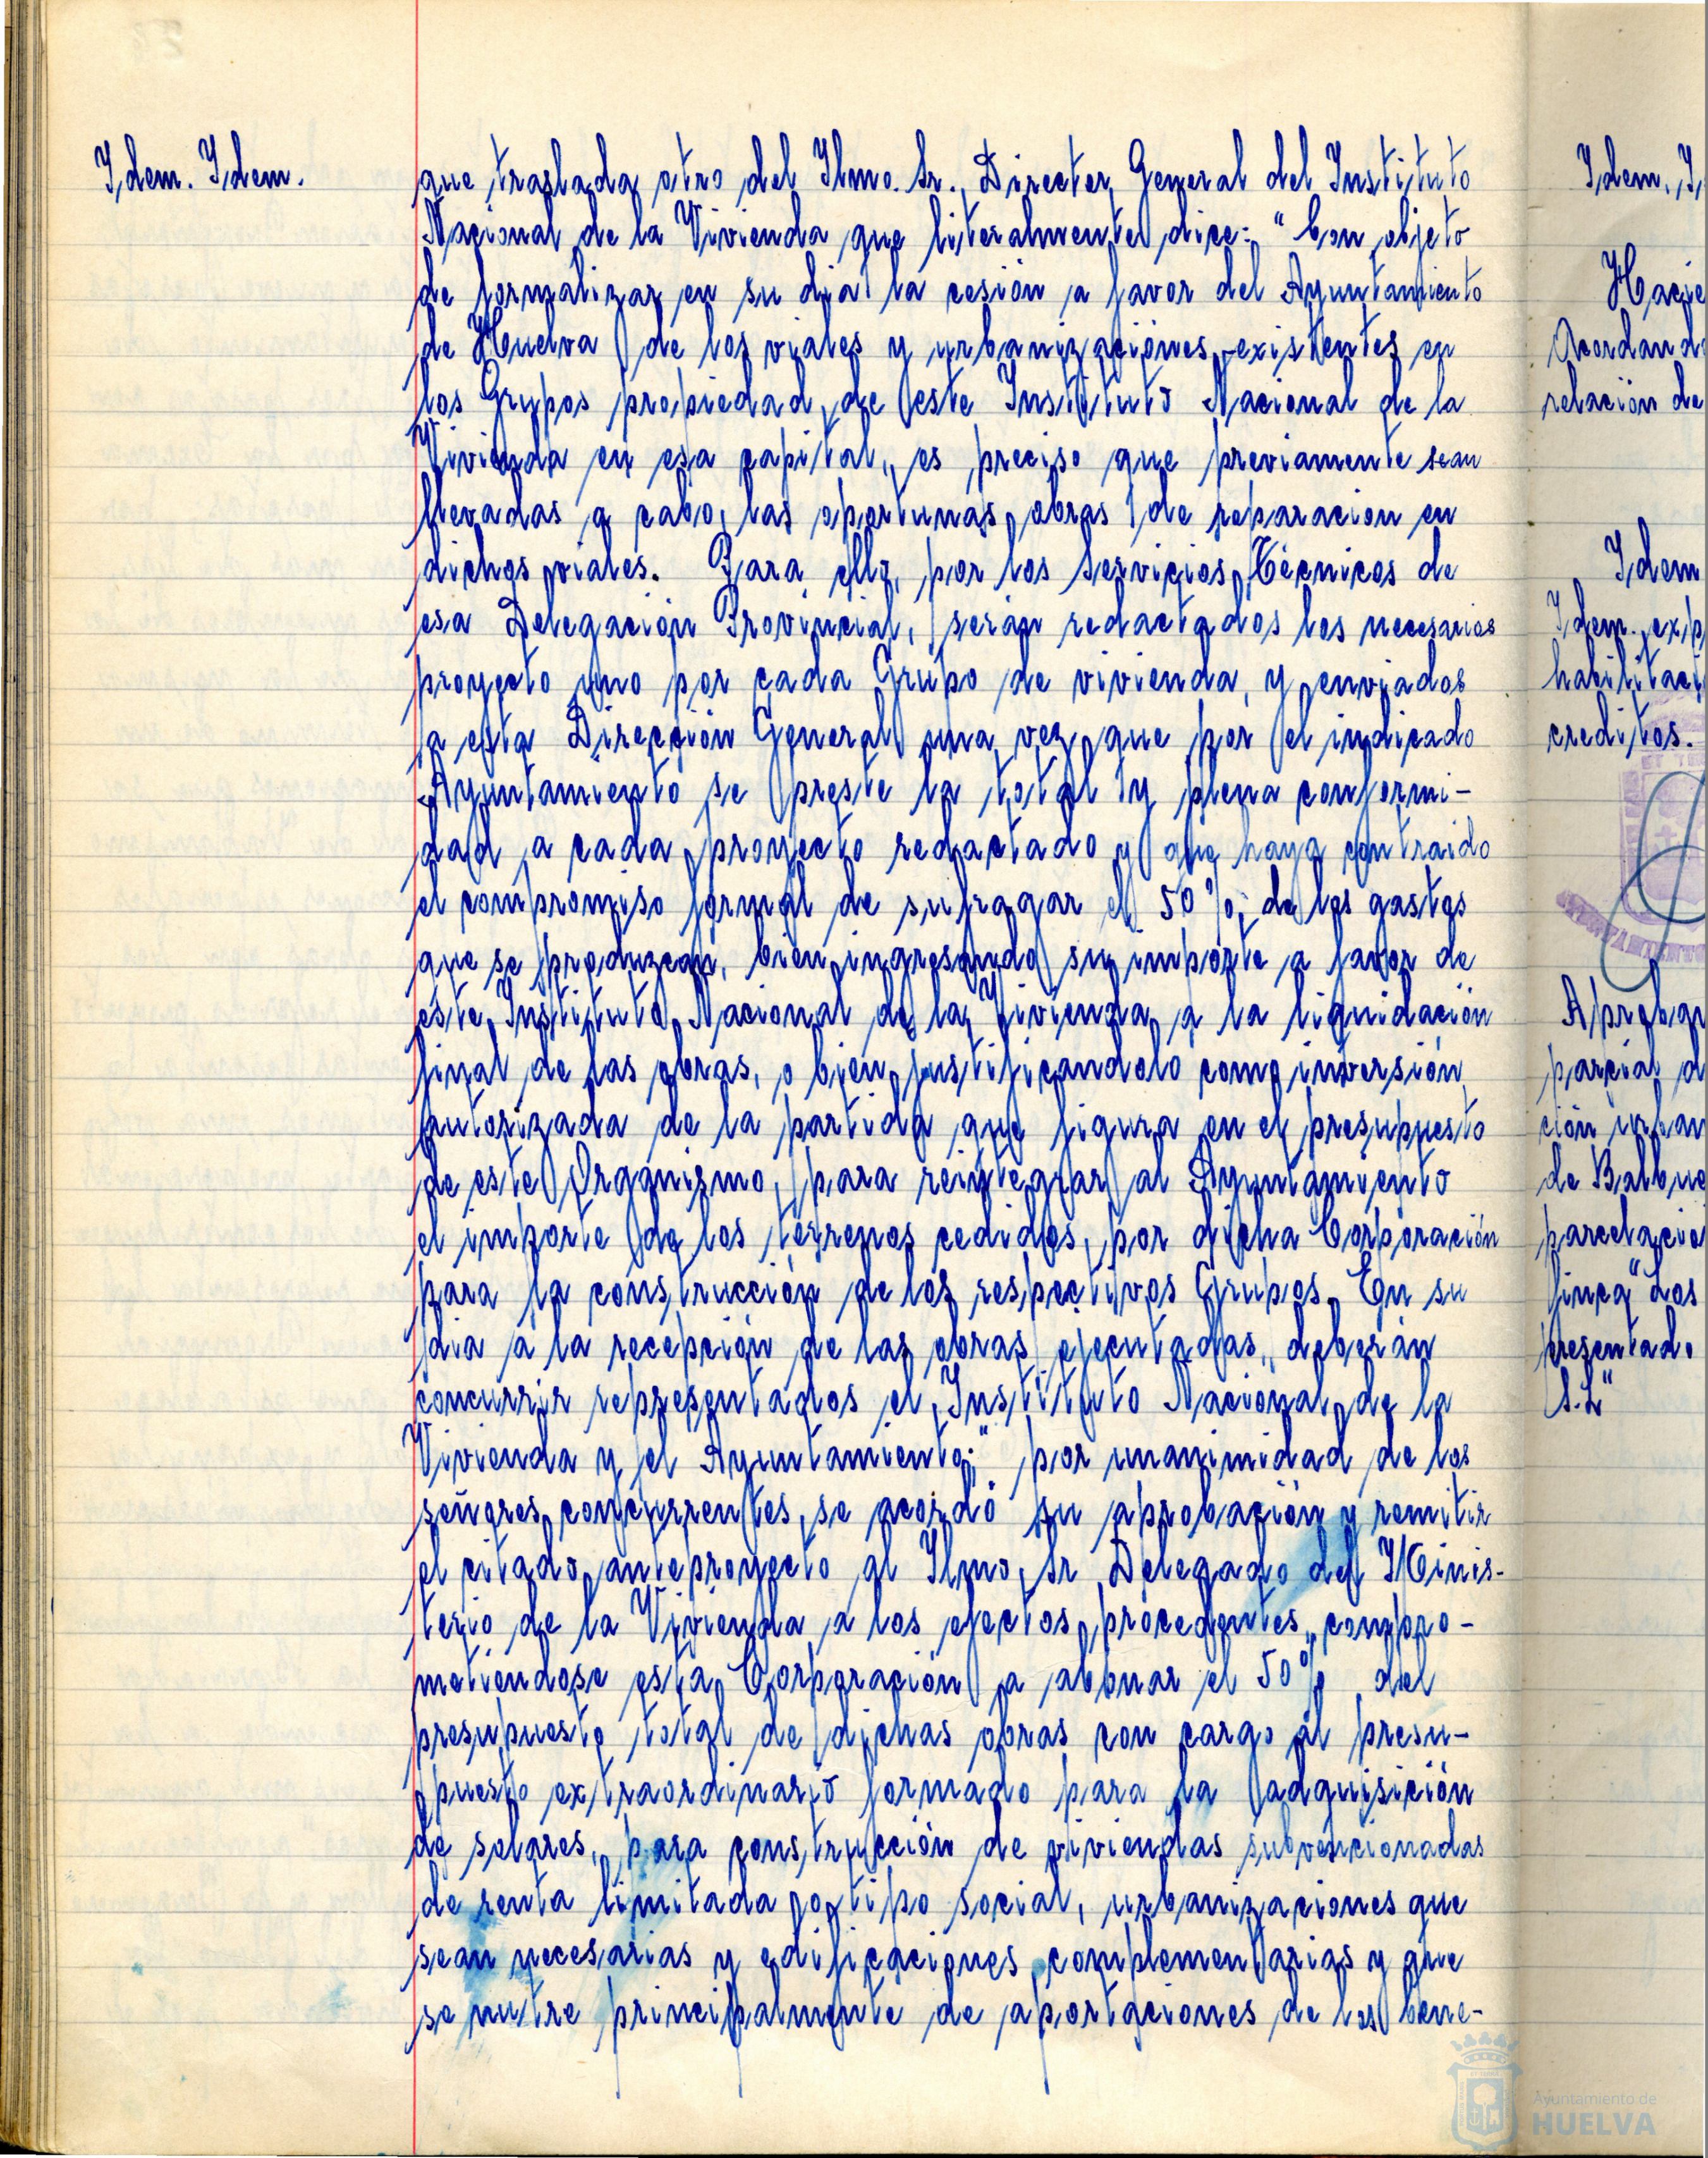 Idem. Idem.
que traslada otro del Ilmo. Sr. Director General del Instituto
Nacional de la Vivienda que literalmente dice: "Con objeto
de formalizar en su dia la cesión a favor del Ayuntamiento
de Huelva de los viales y urbanizaciones existentes en
los Grupos propiedad de este Instituto Nacional de la
Vivienda en esa capital, es preciso que previamente sean
llevadas a cabo las oportunas obras de reparación en
dichos viales. Para ello, por los Servicios Técnicos de
esa Delegación Provincial, serán redactados los necesarios
proyecto uno por cada Grupo de vivienda, y enviados
a esta Dirección General una vez que por el indicado
Ayuntamiento se preste la total y plena conformi-
dad a cada proyecto redactado y que haya contraido
el compromiso formal de sufragar el 50%, de los gastos
que se produzcan, bien ingresando su importe a favor de
este Instituto Nacional de la Vivienda a la liquidación
final de las obras, o bien justificandolo como inversión
autorizada de la partida que figura en el presupuesto
de este Organismo, para reintegrar al Ayuntamiento
el importe de los terrenos cedidos, por dicha Corporación
para la construcción de los respectivos Grupos. En su
dia a la recepción de las obras ejecutadas, deberán
concurrir representados el Instituto Nacional de la
Vivienda y el Ayuntamiento;" por unanimidad de los
señores concurrentes, se acordó su aprobación y remitir
el citado anteproyecto al Ilmo. Sr. Delegado del Minis-
terio de la Vivienda a los efectos procedentes, compro-
metiendose esta Corporación a abonar el 50% del
presupuesto total de dichas obras con cargo al presu-
puesto extraordinario formado para la adquisición
de solares, para construcción de viviendas subvencionadas
de renta limitada o tipo social, urbanizaciones que
sean necesarias y edificaciones complementarias y que
se nutre principalmente de aportaciones de los bene-
Idem. I
Hacie
Acordand
relación de
Idem
Idem. exp
habilitaci
creditos.
Aprobar
parcial d
ción urban
de Balbue
parcelacio
finca "Los
presentado
S.L"
Ayuntamiento de
HUELVA